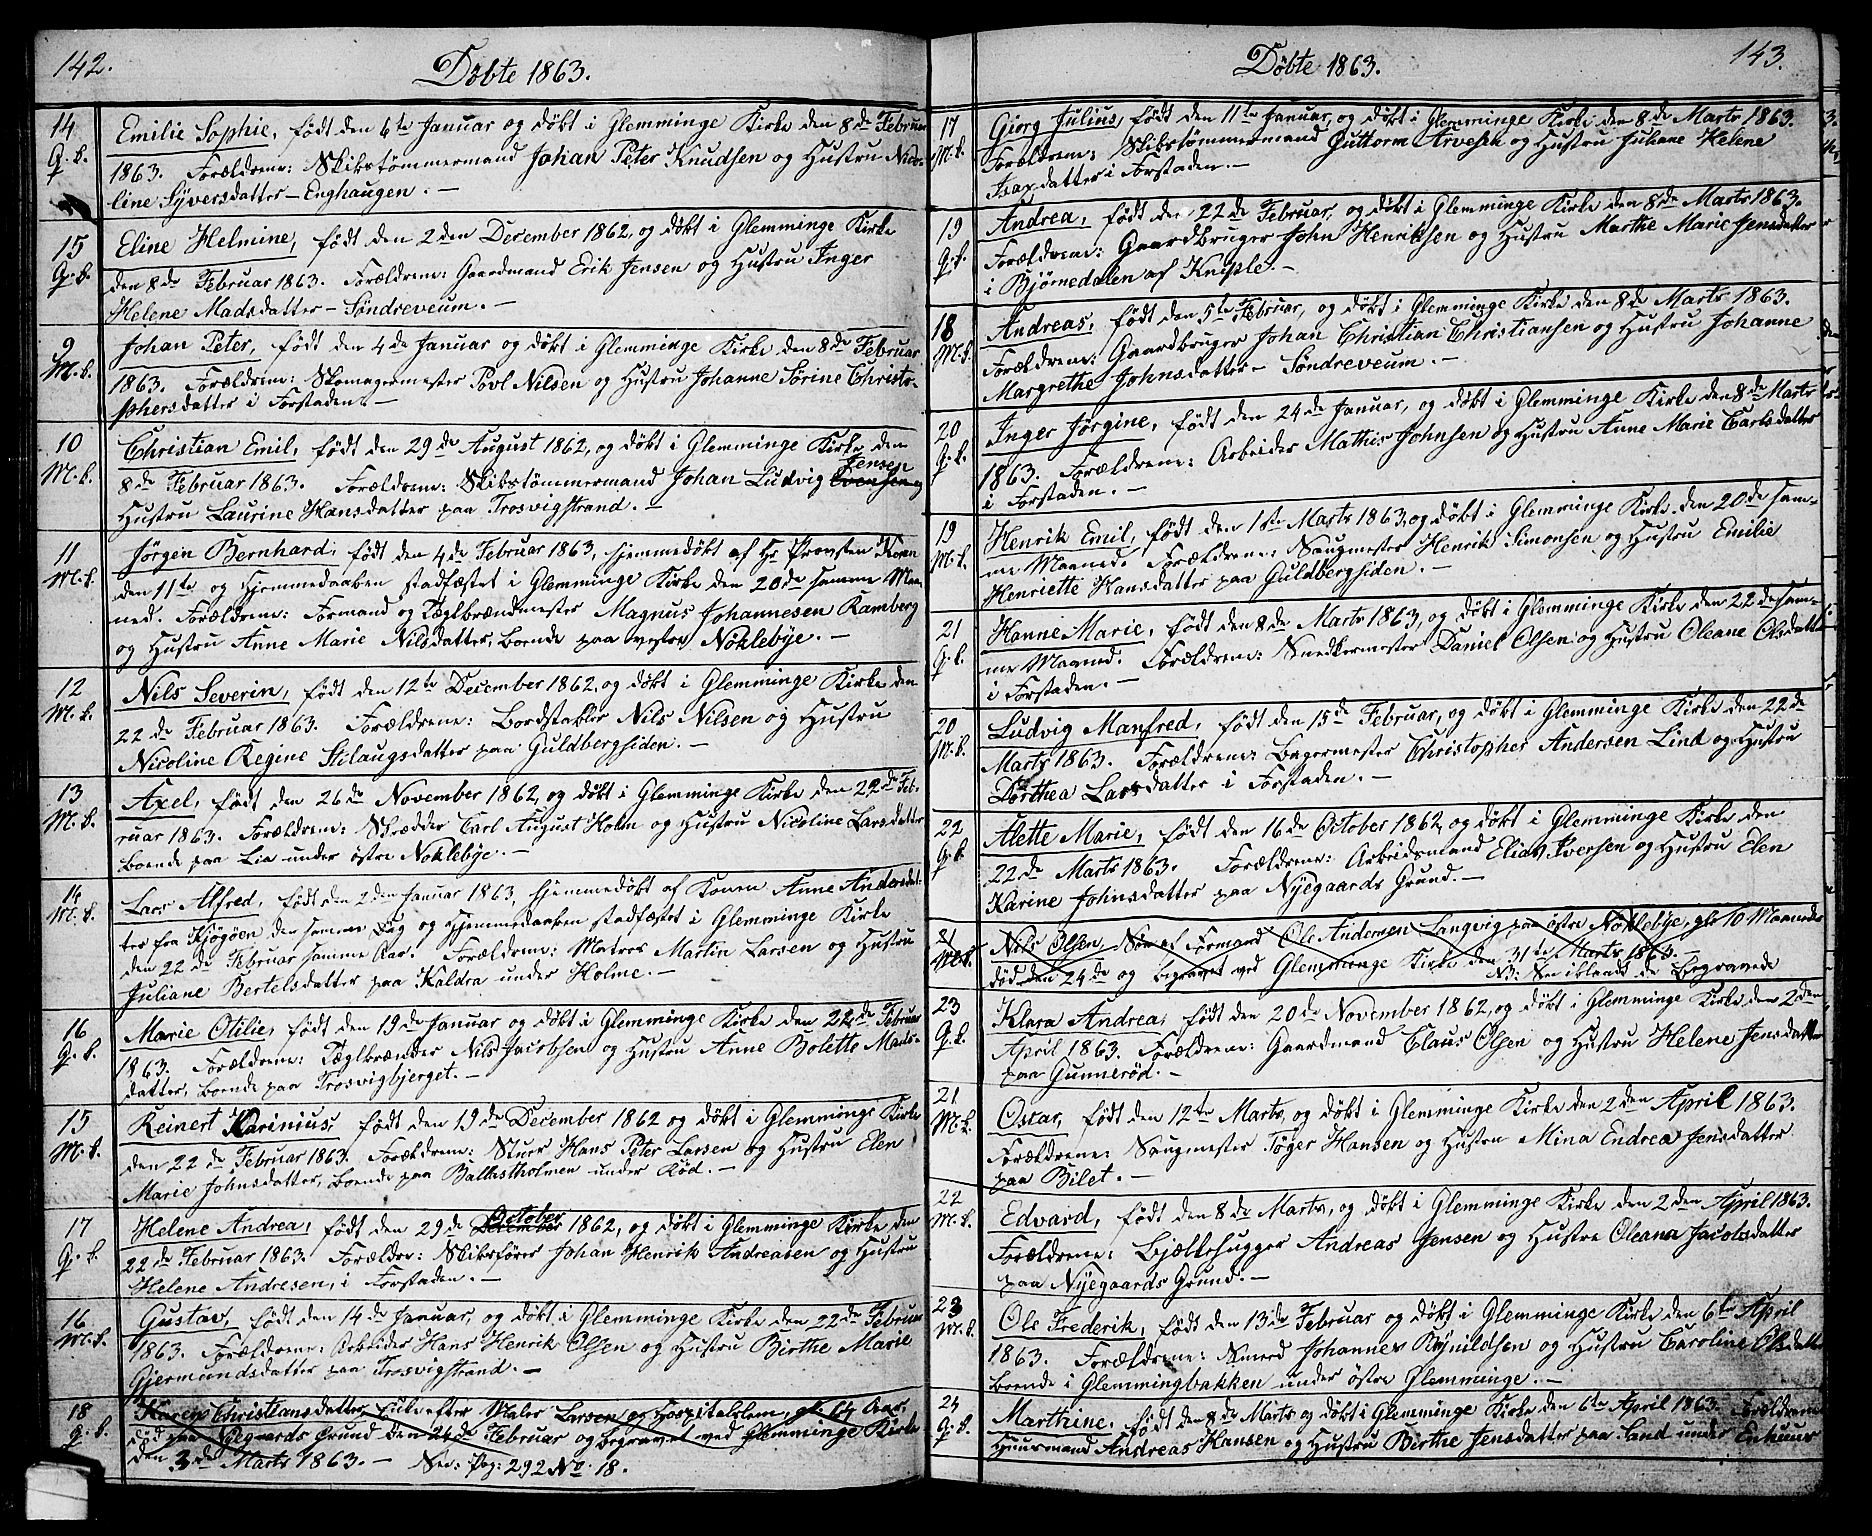 142.
Döbte 1863.
14
Q. k.
Emilie Sophie, født den 6te Januar og døbt i Glemminge Kirke den 8de Februar
1863. Forældrene: Skibstømmermand Johan Peter Knudsen og Hustru Nico-
line Syversdatter - Enghaugen. -
15
Q. k.
Eline Helmine, født den 2den December 1862, og døbt i Glemminge Kirke
den 8de Februar 1863. Forældrene: Gaardmand Erik Jensen og Hustru Inger
Helene Madsdatter - Søndreveum. -
9
M. k.
Johan Peter, født den 4de Januar og døbt i Glemminge Kirke den 8de Februar
1863. Forældrene: Skomagermester Povl Nilsen og Hustru Johanne Sörine Christo-
phersdatter i Forstaden. -
10
M. k.
Christian Emil, født den 29de August 1862, og døbt i Glemminge Kirke den
8de Februar 1863. Forældrene: Skibstømmermand Johan Ludvig Jensen Evensen og
Hustru Laurine Hansdatter paa Trosvigstrand. -
11
M. k.
Jörgen Bernhard, født den 4de Februar 1863, hjemmedøbt af Hr Provsten Koren
den 11te og Hjemmedaaben stadfæstet i Glemminge Kirke den 20de samme Maa-
ned. Forældrene: Formand og Teglbrændmester Magnus Johannesen Kamberg
og Hustru Anne Marie Nilsdatter, boende paa vestre Noklebye. -
12
M. k.
Nils Severin, født den 12te December 1862, og døbt i Glemminge Kirke den
22de Februar 1863. Forældrene: Bordstabler Nils Nilsen og Hustru
Nicoline Regine Stilaugsdatter paa Guldbergsiden. -
13
M. k.
Axel, født den 26de November 1862, og døbt i Glemminge Kirke den 22de Feb-
ruar 1863. Forældrene: Skrædder Carl August Holm og Hustru Nicoline Larsdatter
boende paa Lie under östre Noklebye. -
14
M. k.
Lars Alfred, født den 2den Januar 1863, hjemmedøbt af Konen Anne Andersdat-
ter fra Kjøgøen den samme Dag og Hjemmedaaben stadfæstet i Glemminge Kirke
den 22de Februar samme Aar. Forældrene: Matros Martin Larsen og Hustru
Juliane Bertelsdatter paa Kaldra under Holme. -
16
Q. k.
Marie Otilie, født den 19de Januar og døbt i Glemminge Kirke den 22de Februar
1863. Forældrene: Teglbrænder Nils Jacobsen og Hustru Anne Bolette Mads-
datter, boende paa Trosvigbjerget. -
15
M. k.
Reinert Karinius, født den 19de December 1862 og døbt i Glemminge Kirke
den 22de Februar 1863. Forældrene: Stuer Hans Peter Larsen og Hustr Elen
Marie Johnsdatter, boende paa Ballastholmen under Rød. -
17
Q. k.
Helene Andrea, født den 29de December October 1862, og døbt i Glemminge Kirke den
22de Februar 1863. Forældre: Skibsfører Johan Henrik Andreasen og Hustru
Helene Andresen, i Forstaden. -
16
M. k.
Gustav, født den 14de Januar, og døbt i Glemminge Kirke den 22de Februar
1863. Forældrene: Arbeider Hans Henrik Olsen og Hustru Birthe Marie
Gjermundsdatter paa Trosvigstrand. -
18
Q. k.
Karen Christiansdatter, Enke efter Maler Larsen og Hospitalslem, gl. 64 Aar,
død paa Nyegaards Grund den 24de Februar og begravet ved Glemminge Kirke
den 3de Marts 1863. - See: Pag: 292 No 18.
143.
Döbte 1863.
17
M. k.
Gjorg Julius, født den 11te Januar, og døbt i Glemminge Kirke den 8de Marts 1863.
Forældrene: Skibstømmermand Guttorm Arvesen og Hustru Juliane Helene
Isaxdatter i Forstaden. -
19
Q. k.
Andrea, født den 22de Februar, og døbt i Glemminge Kirke den 8de Marts 1863.
Forældrene: Gaardbruger John Henriksen og Hustru Marthe Marie Jensdatter
i Bjørnedalen af Kniple. -
18
M. k.
Andreas, født den 5te Februar, og døbt i Glemminge Kirke den 8de Marts 1863.
Forældrene: Gaardbruger Johan Christian Christiansen og Hustru Johanne
Margrethe Johnsdatter - Søndreveum. -
20
Q. k.
Inger Jörgine, født den 24de Januar, og døbt i Glemminge Kirke den 8de Marts
1863. Forældrene: Arbeider Mathis Johnsen og Hustru Anne Marie Carlsdatter
i Forstaden. -
19
M. k.
Henrik Emil, født den 1ste Marts 1863, og døbt i Glemminge Kirke den 20de sam-
me Maaned. Forældrene: Saugmester Henrik Simonsen og Hustru Emilie
Henriette Hansdatter paa Guldbergsiden. -
21
Q. k.
Hanne Marie, født den 8de Marts 1863, og døbt i Glemminge Kirke den 22de sam-
me Maaned. Forældrene: Snedkermester Daniel Olsen og Hustru Oleane Olsdatter
i Forstaden. -
20
M. k.
Ludvig Manfred, født den 15de Februar, og døbt i Glemminge Kirke den 22de
Marts 1863. Forældrene: Bagermester Christopher Andersen Lind og Hustru
Dorthea Larsdatter i Forstaden. -
22
Q. k.
Alette Marie, født den 16de October 1862, og døbt i Glemminge Kirke den
22de Marts 1863. Forældrene: Arbeidsmand Elias Iversen og Hustru Elen
Karine Johnsdatter paa Nyegaards Grund. -
21
M. k.
Nils Olsen, Søn af Formand Ole Andersen Langvig paa östre Nöklebye, gl. 10 Maaneder
död den 24de og begravet ved Glemminge Kirke den 31te Marts 1863.
NB: See iblandt de Begravede
23
Q. k.
Klara Andrea, født den 20de November 1862, og døbt i Glemminge Kirke den 2den
April 1863. Forældrene: Gaardmand Claus Olsen og Hustru Helene Jensdatter
paa Gunnerød. -
21
M. k.
Oscar, født den 12te Marts, og døbt i Glemminge Kirke den 2den April 1863.
Forældrene: Saugmester Töger Hansen og Hustru Mina Endrea Jensdatter
paa Bilet. -
22
M. k.
Edvard, født den 8de Marts, og døbt i Glemminge Kirke den 2den April 1863.
Forældrene: Bjelkehugger Andreas Jensen og Hustru Oleana Jacobsdatter
paa Nyegaards Grund. -
23
M. k.
Ole Frederik, født den 13de Februar og døbt i Glemminge Kirke den 6te April
1863. Forældrene: Smed Johannes Rynildsen og Hustru Caroline Olsdatter
boende i Glemmingbakken under östre Glemminge. -
24
Q. k.
Marthine, født den 8de Marts og døbt i Glemminge Kirke den 6te April 1863. Forældrene
Huusmand Andreas Hansen og Hustru Birthe Jensdatter paa Sand under Enhuus